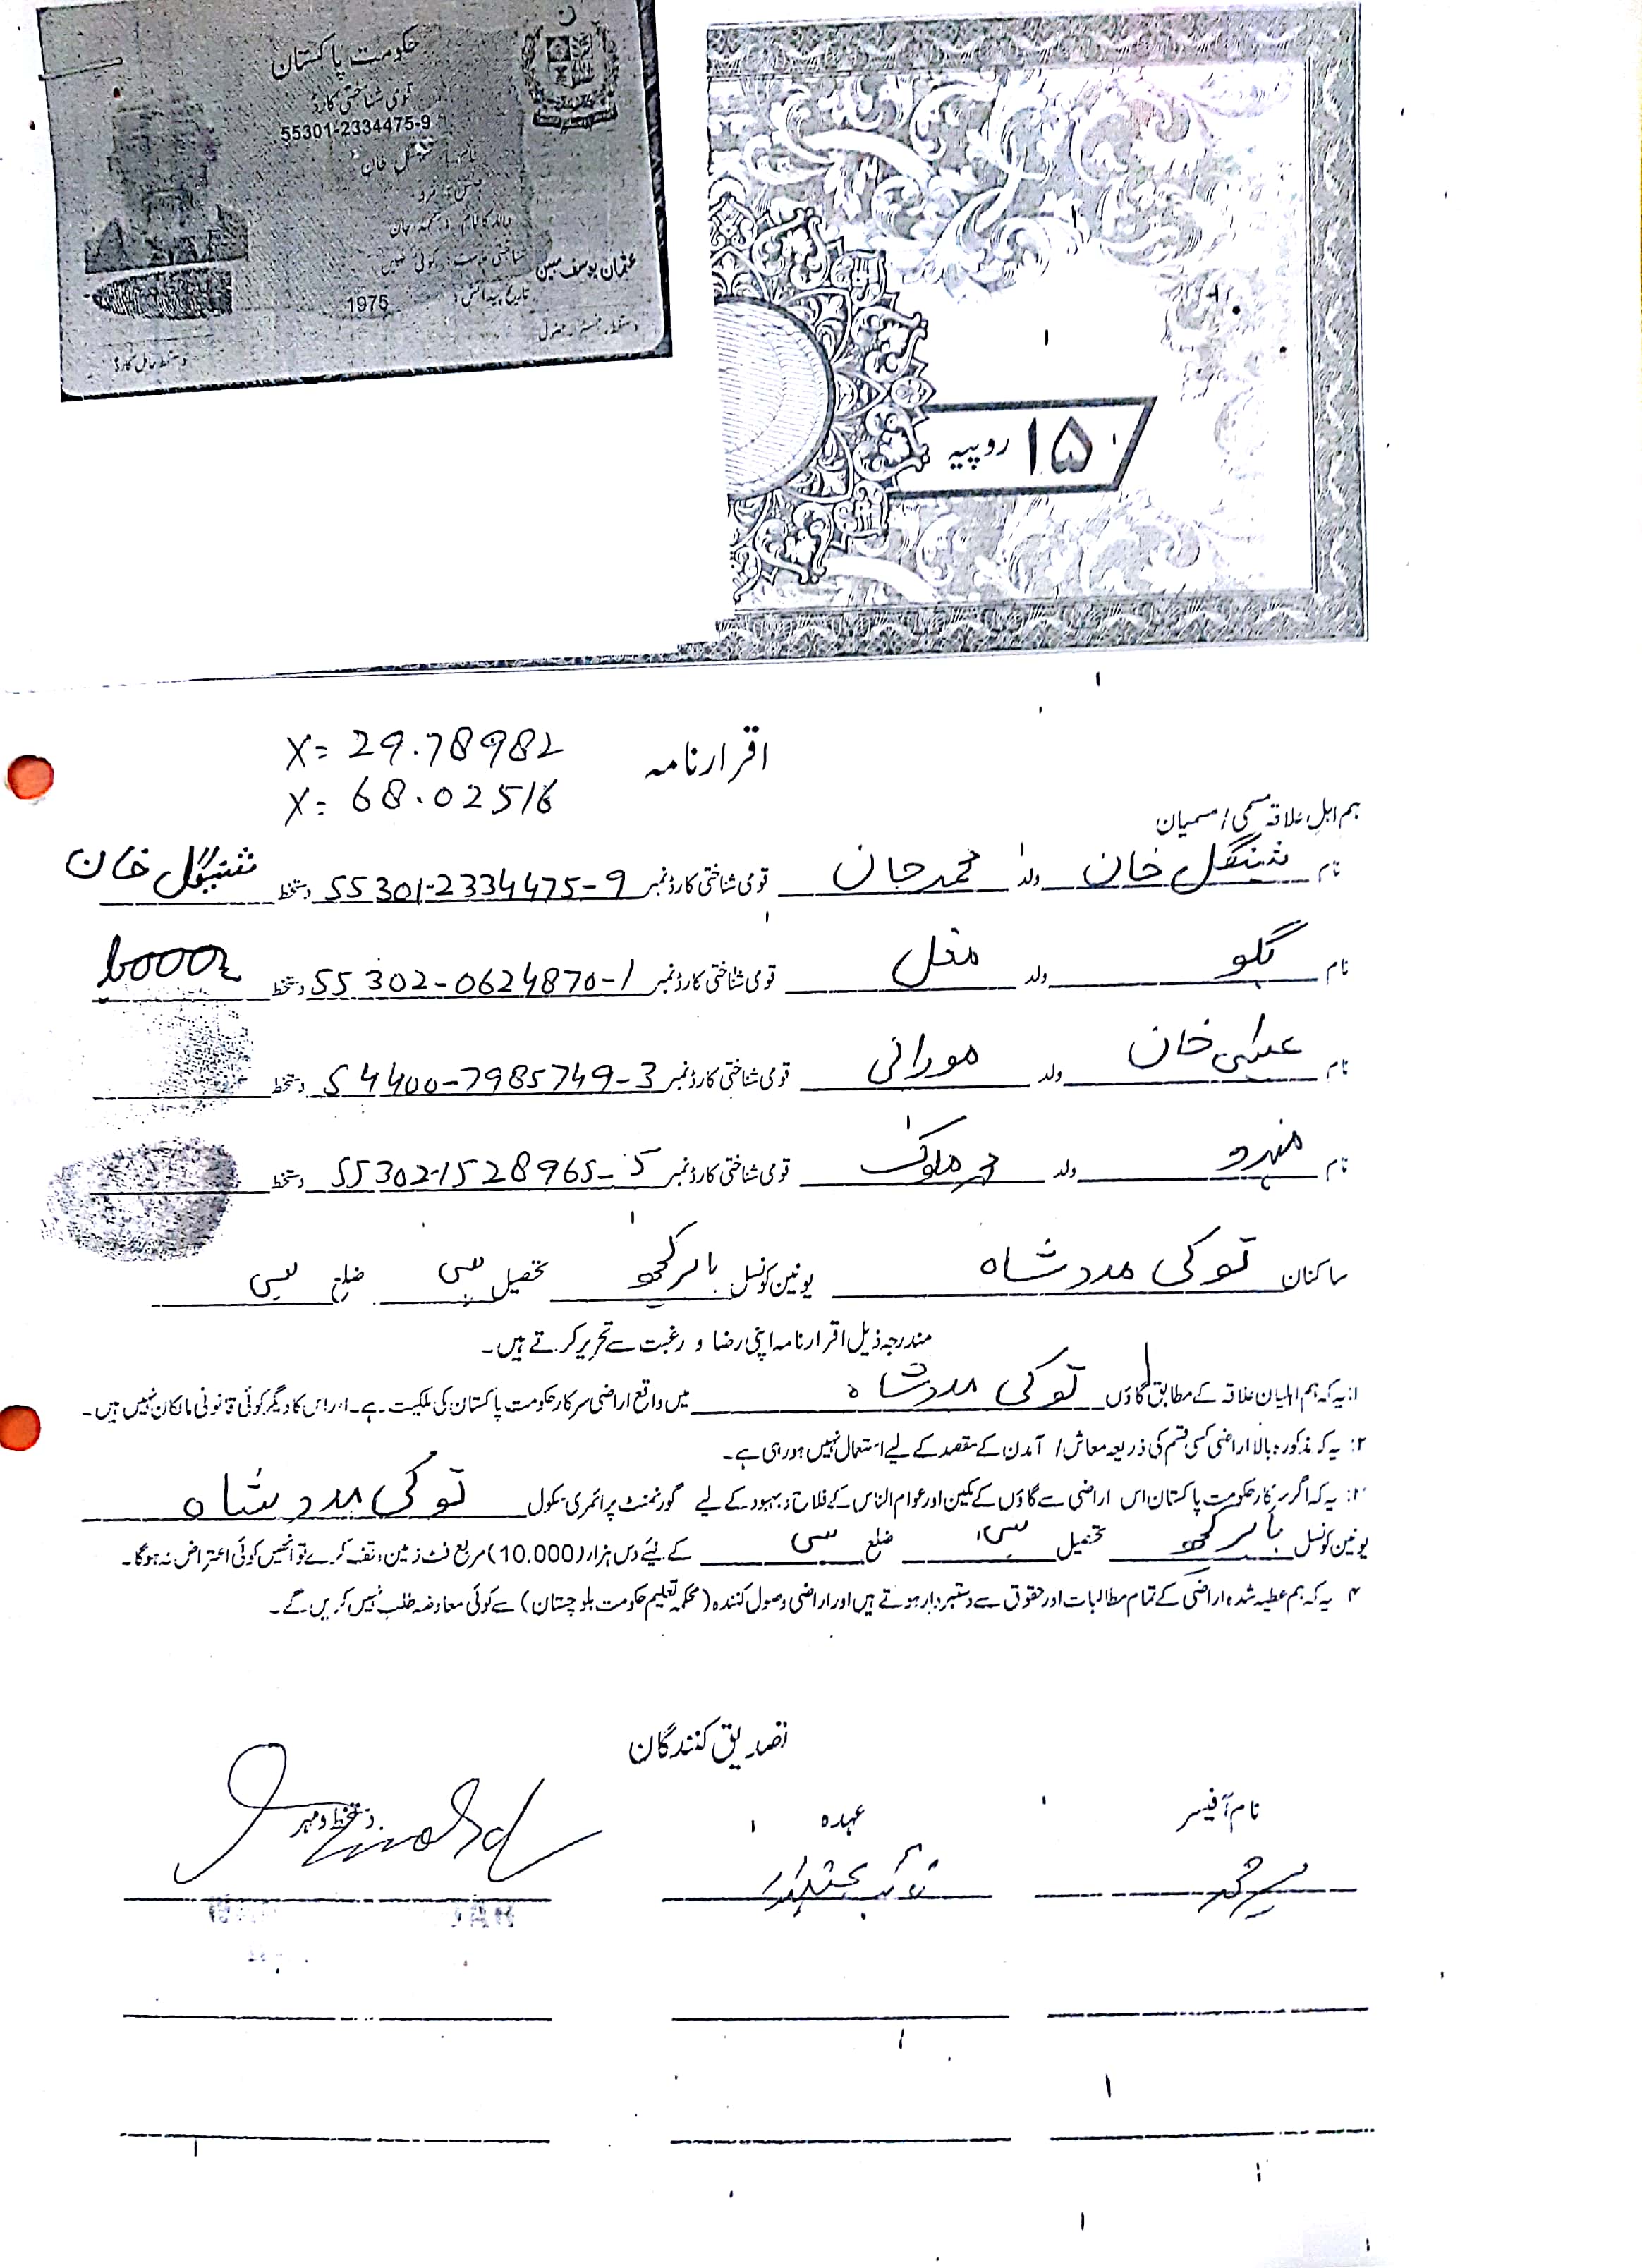 حکومت پاکستان
قومی شناختی کارڈ
55301-2334475-9
خان
والد کا نام : محمد جان
شناختی علامت : کوئی نہیں
عثمان یوسف مبین
تاریخ پیدائش : 1975
دستخط رجسٹرار جنرل
دستخط حامل کارڈ
۱۵ روپیہ
X= 29.78982
X= 68.02516
اقرارنامہ
ہم اہل علاقہ مسمی / مسمیان
نام شنگل خان ولد محمد جان قومی شناختی کارڈ نمبر 55301-2334475-9 دستخط شنگل خان
نام گلو ولد مغل قومی شناختی کارڈ نمبر 55302-0624870-1 دستخط
نام عیسی خان ولد مورانی قومی شناختی کارڈ نمبر 54400-7985749-3 دستخط
نام ولد قومی شناختی کارڈ نمبر 55302-1528965-5 دستخط
ساکنان توکی مدد شاہ یونین کونسل بابر کچھ تحصیل سبی ضلع سبی
مندرجہ ذیل اقرارنامہ اپنی رضا و رغبت سے تحریر کرتے ہیں۔
۱: یہ کہ ہم اہلیان علاقہ کے مطابق گاؤں توکی مدد شاہ میں واقع اراضی سرکار حکومت پاکستان کی ملکیت ہے۔ اور اس کا دیگر کوئی قانونی مالکان نہیں ہیں۔
۲: یہ کہ مذکورہ بالا اراضی کسی قسم کی ذریعہ معاش / آمدن کے مقصد کے لیے استعمال نہیں ہو رہی ہے۔
۳: یہ کہ اگر سرکار حکومت پاکستان اس اراضی سے گاؤں کے مکین اور عوام الناس کے فلاح و بہبود کے لیے گورنمنٹ پرائمری سکول توکی مدد شاہ
یونین کونسل بابر کچھ تحصیل سبی ضلع سبی کے لیئے دس ہزار (10.000) مربع فٹ زمین وقف کرے تو انھیں کوئی اعتراض نہ ہوگا۔
۴ یہ کہ ہم عطیہ شدہ اراضی کے تمام مطالبات اور حقوق سے دستبردار ہوتے ہیں اور اراضی وصول کنندہ (محکمہ تعلیم حکومت بلوچستان) سے کوئی معاوضہ طلب نہیں کریں گے۔
تصدیق کنندگان
نام آفیسر عہدہ دستخط و مہر
نائب تحصیلدار